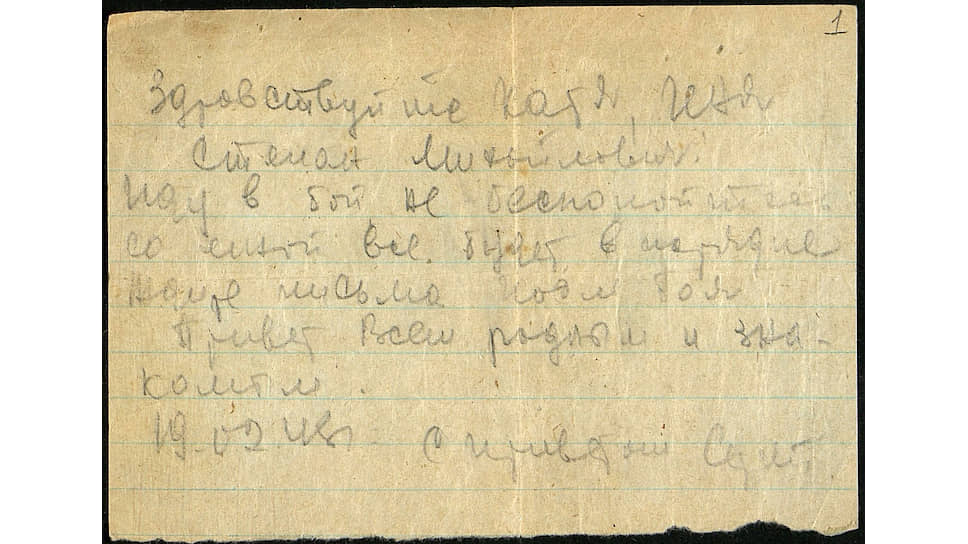 1
Здравствуйте Катя,
Степан Михайлович.
Иду в бой не беспокойтесь
со мной все будет в порядке
письма после боя
Привет всем родным и зна-
комым.
19.02.43г.
С приветом